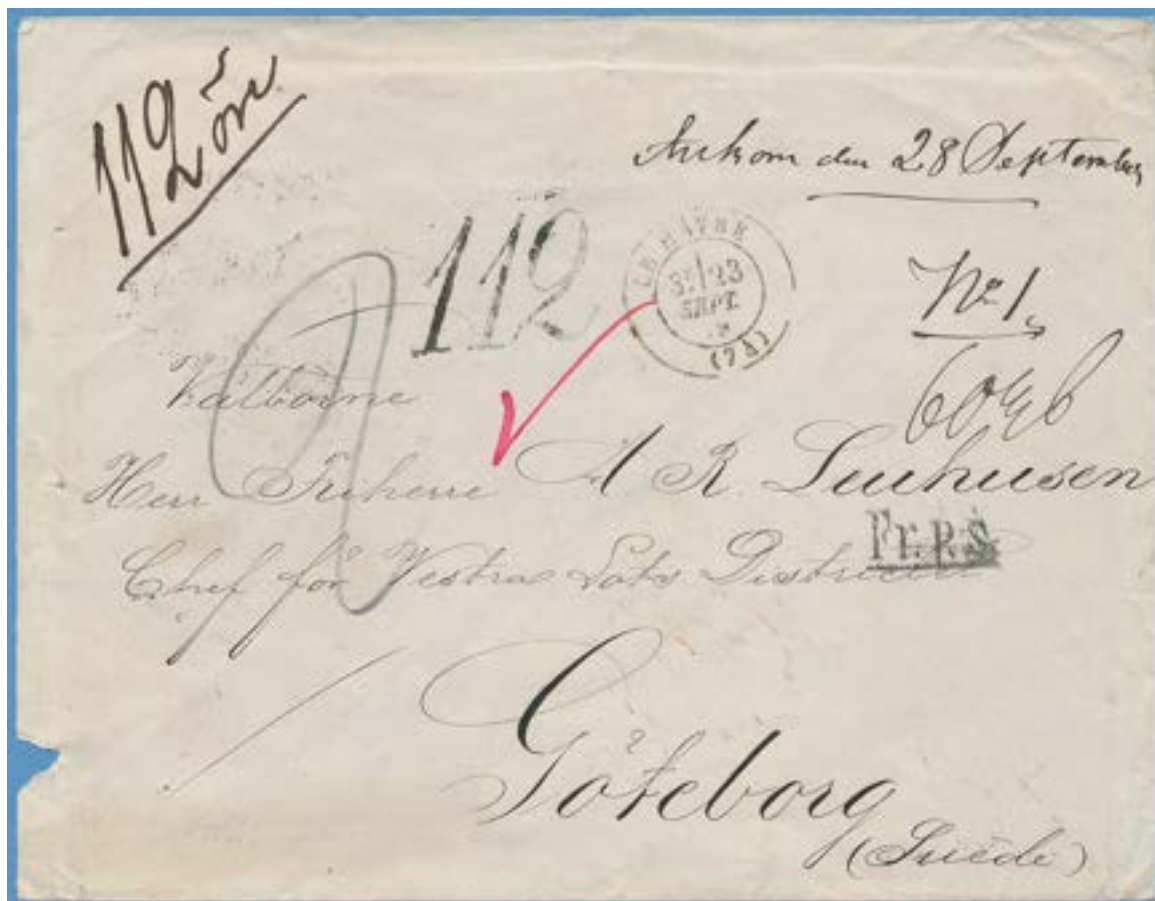 112 öre.
Ankom den 28 September
112
LE HAVRE
23
SEPT.
No 1.
Välborne
Herr Friherre A R.
Chef för Vestra Lots Districtet
Fr. P. S.
Göteborg
(Suède)